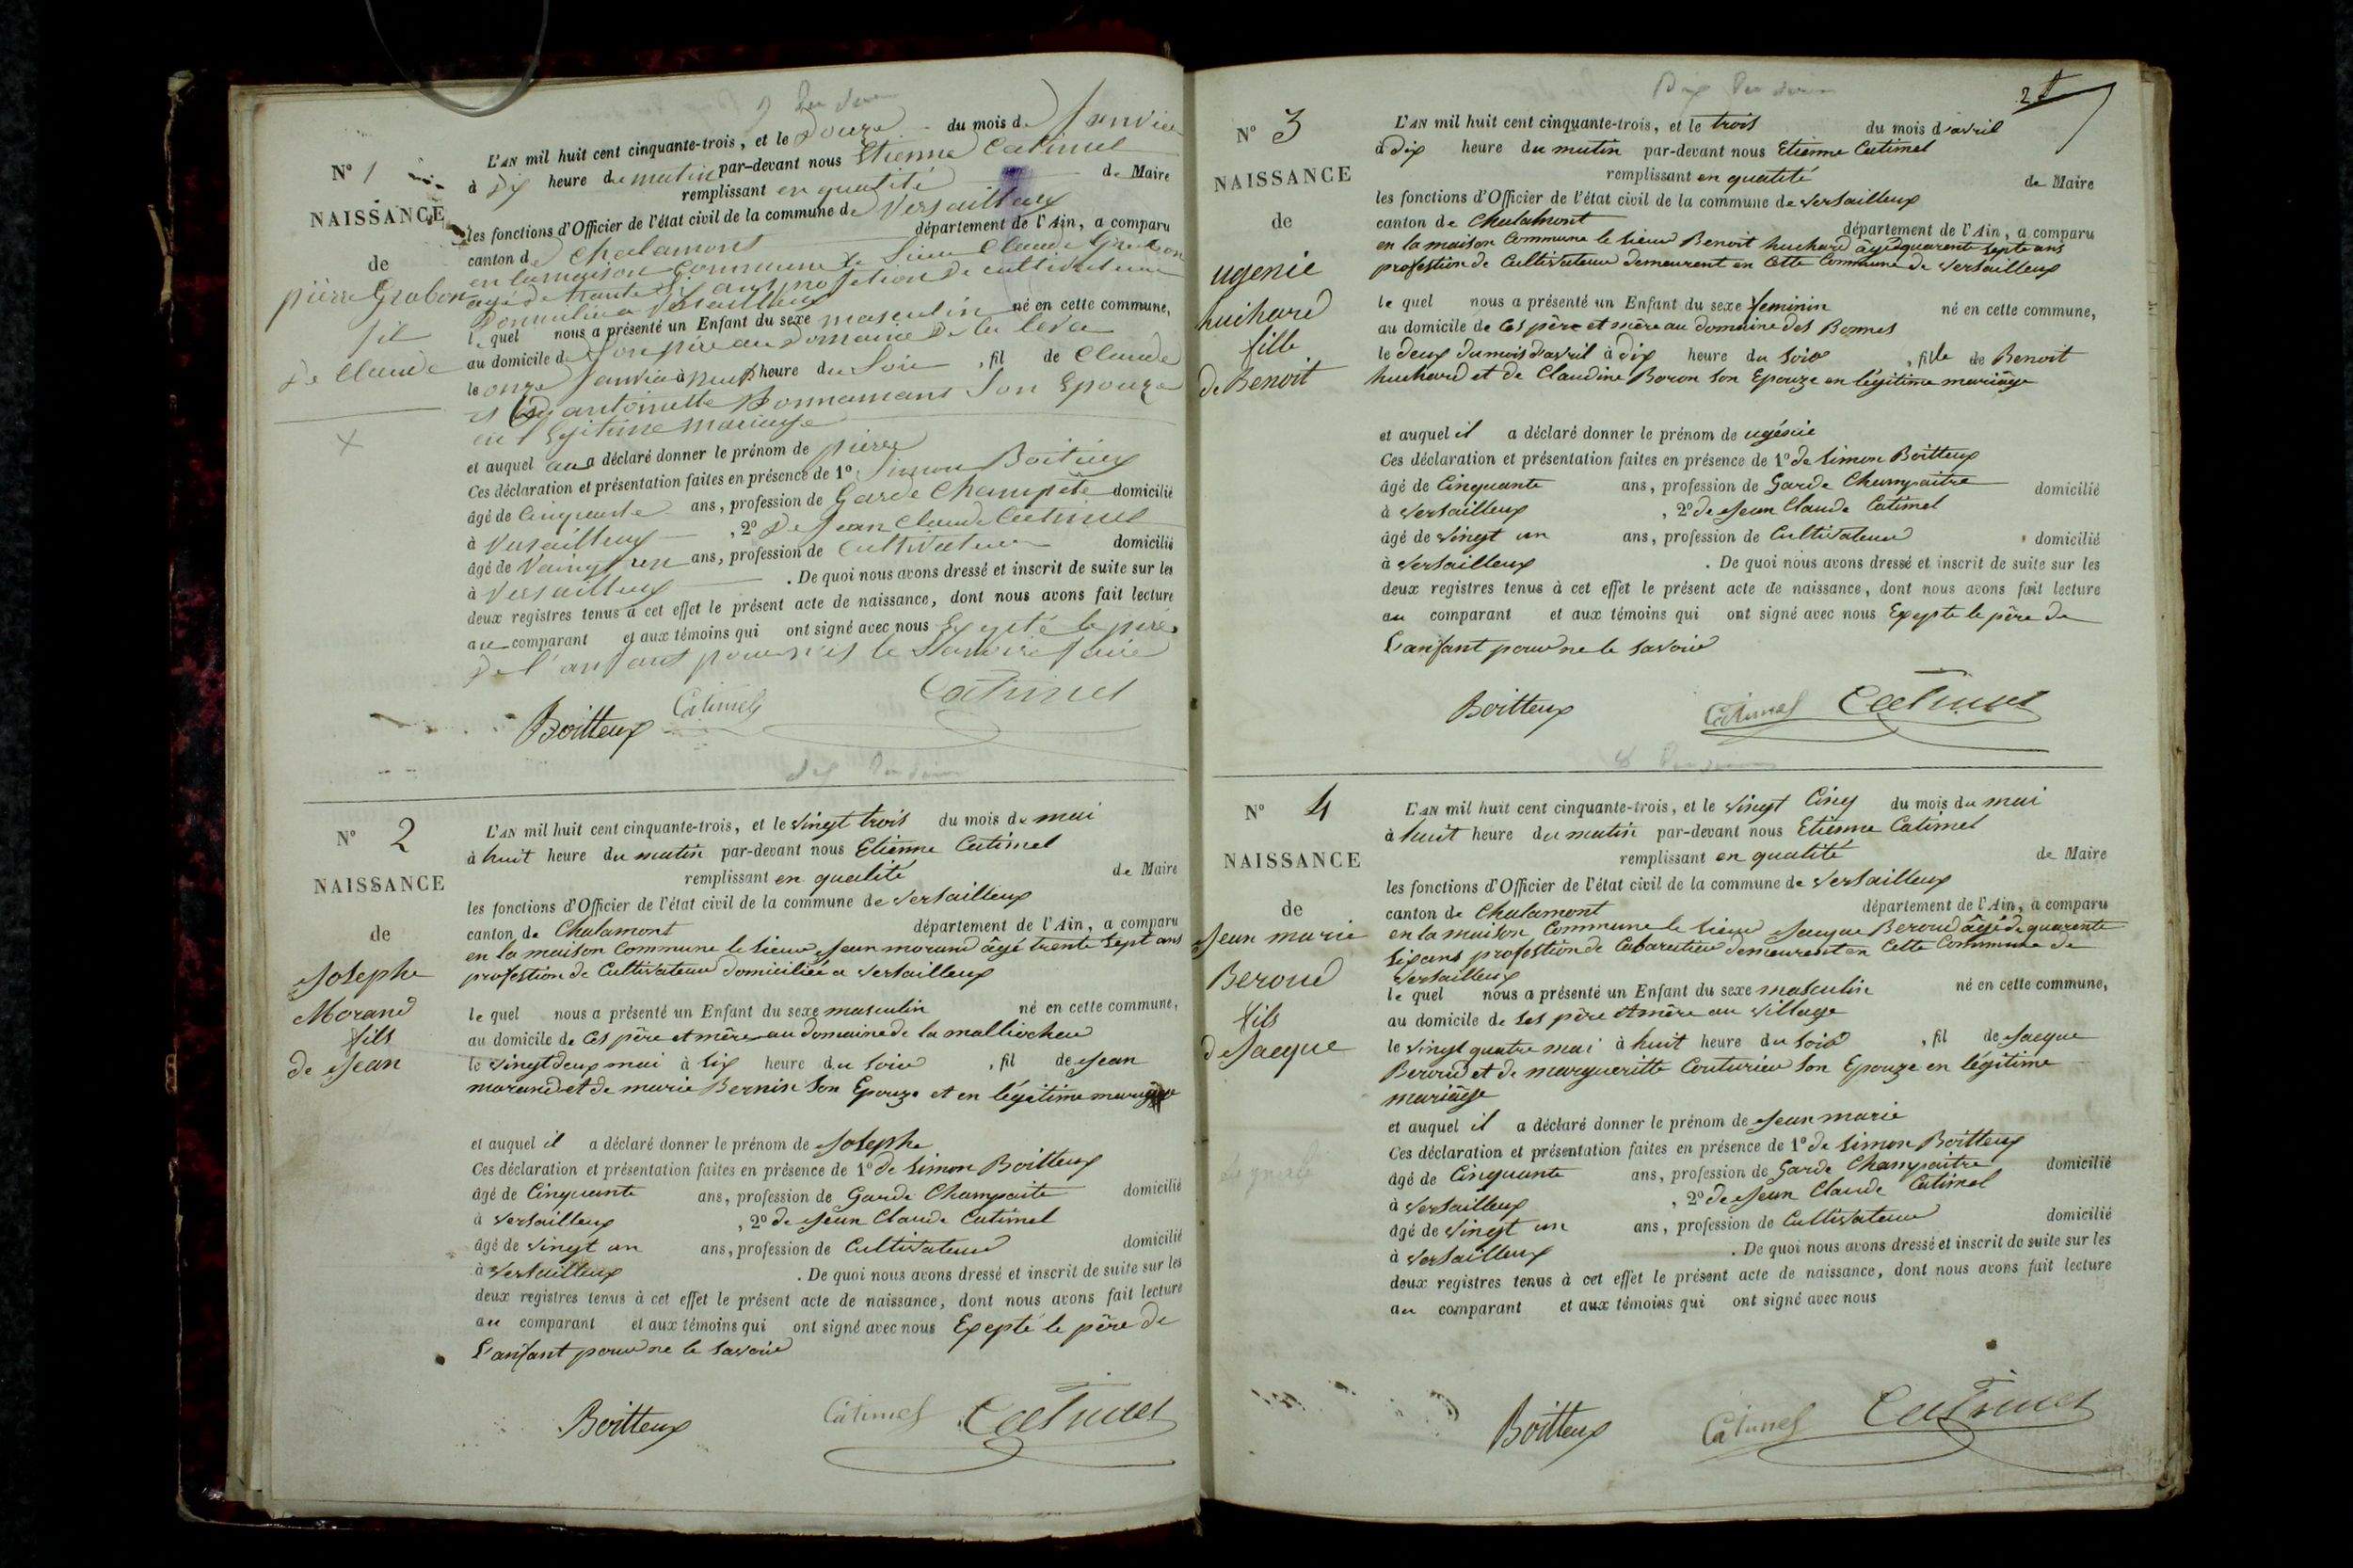 N° 1
NAISSANCE
de
pierre Grabon
fil
de Claude
L'AN mil huit cent cinquante-trois, et le Douze du mois de Janvier
à Dix heure du matin par-devant nous Etienne Catimel
remplissant en qualité de Maire
les fonctions d'Officier de l'état civil de la commune de Versailleux
canton de Chalamont département de l'Ain, a comparu
en la maison Commune le Sieur Claude
né en cette commune,
le quel nous a présenté un Enfant du sexe masculin
au domicile de Son père au Domaine De la
le onze Janvier à neuf heure du Soir, fil de Claude
et antoinette Bonnamant Son Epouze
en légitime mariage
et auquel a déclaré donner le prénom de pierre
Ces déclaration et présentation faites en présence de 1° Simon Boitteux
âgé de Cinquante ans, profession de Garde Champète domicilié
à Versailleux, 2° De Jean Claude Catimel
âgé de Vaingt un ans, profession de Cultivateur domicilié
à Versailleux. De quoi nous avons dressé et inscrit de suite sur les
deux registres tenus à cet effet le présent acte de naissance, dont nous avons fait lecture
au comparant et aux témoins qui ont signé avec nous Exepté le père
De l'anfant pour
Boitteux Catimel Catimel
N° 2
NAISSANCE
de
Josephe
Morand
fils
de Jean
L'AN mil huit cent cinquante-trois, et le vingt trois du mois de mai
à huit heure du matin par-devant nous Etienne Catimel
remplissant en qualité de Maire
les fonctions d'Officier de l'état civil de la commune de Versailleux
canton de Chalamont département de l'Ain, a comparu
en la maison Commune le sieur Jean morand âgé trente sept ans
profestion de Cultivateur domiciliée a versailleux
le quel nous a présenté un Enfant du sexe masculin né en cette commune,
au domicile de ces père et mère au domaine de la
le vingt deux mai à six heure du soir, fil de Jean
morand et de marie Bernin son Epouze et en légitime mariage
et auquel il a déclaré donner le prénom de Josephe
Ces déclaration et présentation faites en présence de 1° de Simon Boitteux
âgé de Cinquante ans, profession de Garde Champaite domicilié
à versailleux, 2° de Jean Claude Catimel
âgé de vingt un ans, profession de Cultivateur domicilié
à versailleux. De quoi nous avons dressé et inscrit de suite sur les
deux registres tenus à cet effet le présent acte de naissance, dont nous avons fait lecture
au comparant et aux témoins qui ont signé avec nous Exepté le père de
L'anfant pour ne le savoir
Boitteux Catimel Catimel
2
N° 3
NAISSANCE
de
ugenie
huchard
fille
de Benoit
L'AN mil huit cent cinquante-trois, et le trois du mois d'avril
à dix heure du matin par-devant nous Etienne Catimel
remplissant en qualité de Maire
les fonctions d'Officier de l'état civil de la commune de versailleux
canton de Chalamont département de l'Ain, a comparu
en la maison Commune le sieur Benoit huchard âgé quarente septe ans
profestion de Cultivateur demeurent en Cette Commune de versailleux
le quel nous a présenté un Enfant du sexe feminin né en cette commune,
au domicile de ces père et mère au domaine des Bonnes
le deux du mois d'avril à dix heure du soir, fille de Benoit
huchard et de Claudine Boron son Epouze en légitime mariâge
et auquel il a déclaré donner le prénom de ugénie
Ces déclaration et présentation faites en présence de 1° de Simon Boitteux
âgé de Cinquante ans, profession de Garde Champaitre domicilié
à versailleux, 2° de Jean Claude Catimel
âgé de vingt un ans, profession de Cultivateur domicilié
à versailleux. De quoi nous avons dressé et inscrit de suite sur les
deux registres tenus à cet effet le présent acte de naissance, dont nous avons fait lecture
au comparant et aux témoins qui ont signé avec nous Exepte le père de
L'anfant pour ne le savoir
Boitteux Catimel Catimel
N° 4
NAISSANCE
de
Jean marie
Beroud
fils
de Jacque
L'AN mil huit cent cinquante-trois, et le vingt Cinq du mois du mai
à huit heure du matin par-devant nous Etienne Catimel
remplissant en qualité de Maire
les fonctions d'Officier de l'état civil de la commune de versailleux
canton de Chalamont département de l'Ain, a comparu
en la maison Commune le sieur Jacque Beroud âgé de quarente
six ans profestion de Cabaretier demeurent en Cette Commune de
versailleux
le quel nous a présenté un Enfant du sexe masculin né en cette commune,
au domicile de ses père et mère au village
le vingt quatre mai à huit heure du soir, fil de Jacque
Beroud et de margueritte Couturier son Epouze en légitime
mariâge
et auquel il a déclaré donner le prénom de Jean marie
Ces déclaration et présentation faites en présence de 1° de Simon Boitteux
âgé de Cinquante ans, profession de Garde Champaitre domicilié
à versailleux, 2° de Jean Claude Catimel
âgé de vingt un ans, profession de Cultivateur domicilié
à versailleux. De quoi nous avons dressé et inscrit de suite sur les
deux registres tenus à cet effet le présent acte de naissance, dont nous avons fait lecture
au comparant et aux témoins qui ont signé avec nous
Boitteux Catimel Catimel